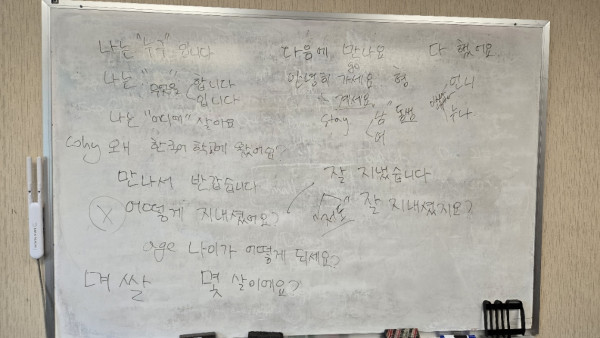 나는 "누구" 입니다
나는 "무엇을" 합니다
입니다
나는 "어디에" 살아요
why 왜 한국어 학교에 왔어요?
만나서 반갑습니다
어떻게 지내셨어요?
age 나이가 어떻게 되세요?
몇 살이에요?
다음에 만나요
go
안녕히 가세요
계세요
stay
남
여
다 했어요
형
언니
누나
잘 지냈습니다
잘 지내셨지요?